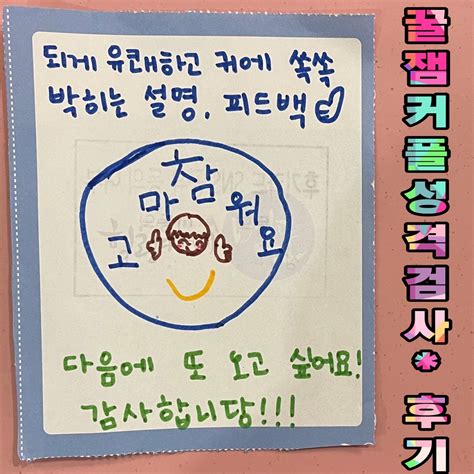 되게 유쾌하고 귀에 쏙쏙
박히는 설명, 피드백
참
마 워
고 요
다음에 또 오고 싶어요!
감사합니당!!!
꿀잼커플성격검사* 후기